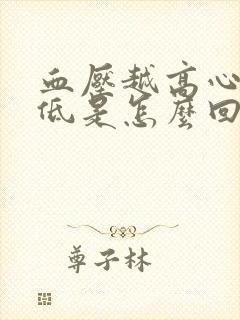 血壓越高心
低是怎麼回
尊子林